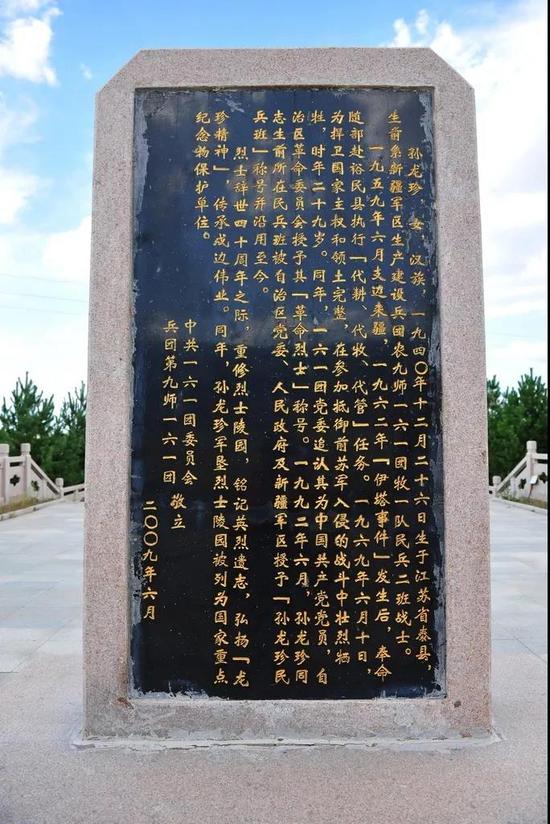 孙龙珍，女，汉族，一九四〇年十二月二十六日生于江苏省泰县，
生前系新疆军区生产建设兵团农九师一六一团牧一队民兵二班战士。
一九五九年六月支边来疆，一九六二年「伊塔事件」发生后，奉命
随部赴裕民县执行「代耕、代牧、代管」任务。一九六九年六月十日，
为捍卫国家主权和领土完整，在参加抵御前苏军入侵的战斗中壮烈牺
牲，时年二十九岁。同年，一六一团党委追认其为中国共产党党员，自
治区革命委员会授予其「革命烈士」称号。一九九二年六月，孙龙珍同
志生前所在民兵班被自治区党委、人民政府及新疆军区授予「孙龙珍民
兵班」称号并沿用至今。
烈士辞世四十周年之际，重修烈士陵园，铭记英烈遗志，弘扬「龙
珍精神」，传承戍边伟业。同年，孙龙珍军垦烈士陵园被列为国家重点
纪念物保护单位。
中共一六一团委员会
兵团第九师一六一团
敬立
二〇〇九年六月